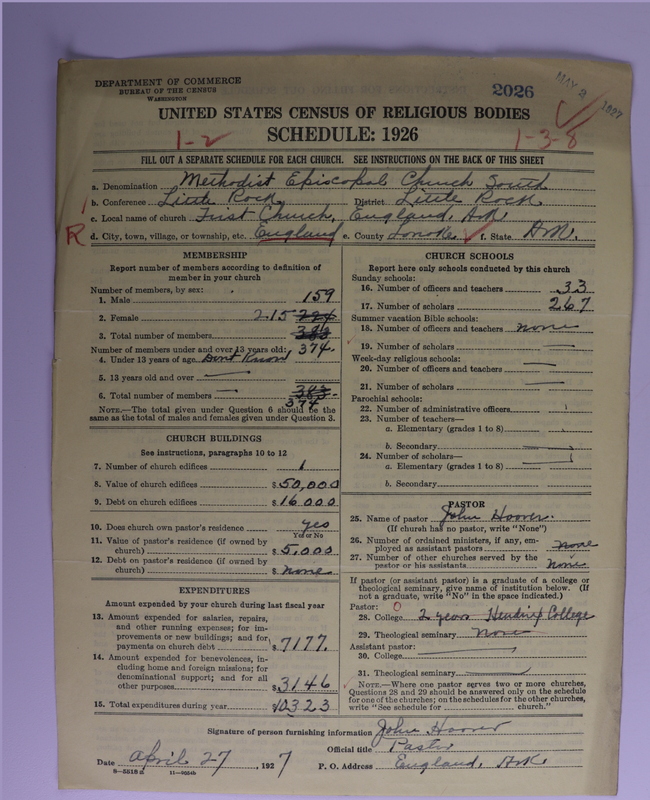 DEPARTMENT OF COMMERCE
BUREAU OF THE CENSUS
WASHINGTON
2026
MAY 2 1927
UNITED STATES CENSUS OF RELIGIOUS BODIES
1-2 SCHEDULE: 1926 1-3-8
FILL OUT A SEPARATE SCHEDULE FOR EACH CHURCH. SEE INSTRUCTIONS ON THE BACK OF THIS SHEET
a. Denomination Methodist Episcopal Church South
b. Conference Little Rock District Little Rock
c. Local name of church First Church, England, Ark
R d. City, town, village, or township, etc. England e. County Lonoke f. State Ark.
MEMBERSHIP
Report number of members according to definition of
member in your church
Number of members, by sex:
1. Male 159
2. Female 215 224
3. Total number of members 383
374.
Number of members under and over 13 years old:
4. Under 13 years of age Dont Know
5. 13 years old and over —
6. Total number of members 383.
374
NOTE.—The total given under Question 6 should be the
same as the total of males and females given under Question 3.
CHURCH BUILDINGS
See instructions, paragraphs 10 to 12
7. Number of church edifices 1
8. Value of church edifices $50,000
9. Debt on church edifices $16000
10. Does church own pastor's residence yes
Yes or No
11. Value of pastor's residence (if owned by
church) $5,000
12. Debt on pastor's residence (if owned by
church) $none
EXPENDITURES
Amount expended by your church during last fiscal year
13. Amount expended for salaries, repairs,
and other running expenses; for im-
provements or new buildings; and for
payments on church debt $7177.
14. Amount expended for benevolences, in-
cluding home and foreign missions; for
denominational support; and for all
other purposes $3146
15. Total expenditures during year $10323
CHURCH SCHOOLS
Report here only schools conducted by this church
Sunday schools:
16. Number of officers and teachers 33
17. Number of scholars 267
Summer vacation Bible schools:
18. Number of officers and teachers none
19. Number of scholars —
Week-day religious schools:
20. Number of officers and teachers —
21. Number of scholars —
Parochial schools:
22. Number of administrative officers
23. Number of teachers—
a. Elementary (grades 1 to 8)
b. Secondary —
24. Number of scholars—
a. Elementary (grades 1 to 8) —
b. Secondary
PASTOR
25. Name of pastor John Hoover.
(If church has no pastor, write "None")
26. Number of ordained ministers, if any, em-
ployed as assistant pastors none
27. Number of other churches served by the
pastor or his assistants none
If pastor (or assistant pastor) is a graduate of a college or
theological seminary, give name of institution below. (If
not a graduate, write "No" in the space indicated.)
Pastor: 0
28. College 2 years Hendrix College
29. Theological seminary none
Assistant pastor:
30. College —
31. Theological seminary —
NOTE.—Where one pastor serves two or more churches,
Questions 28 and 29 should be answered only on the schedule
for one of the churches; on the schedules for the other churches,
write "See schedule for church."
Signature of person furnishing information John Hoover
Official title Pastor
Date April 27, 1927 P. O. Address England, Ark.
8-5318a 11-8554b